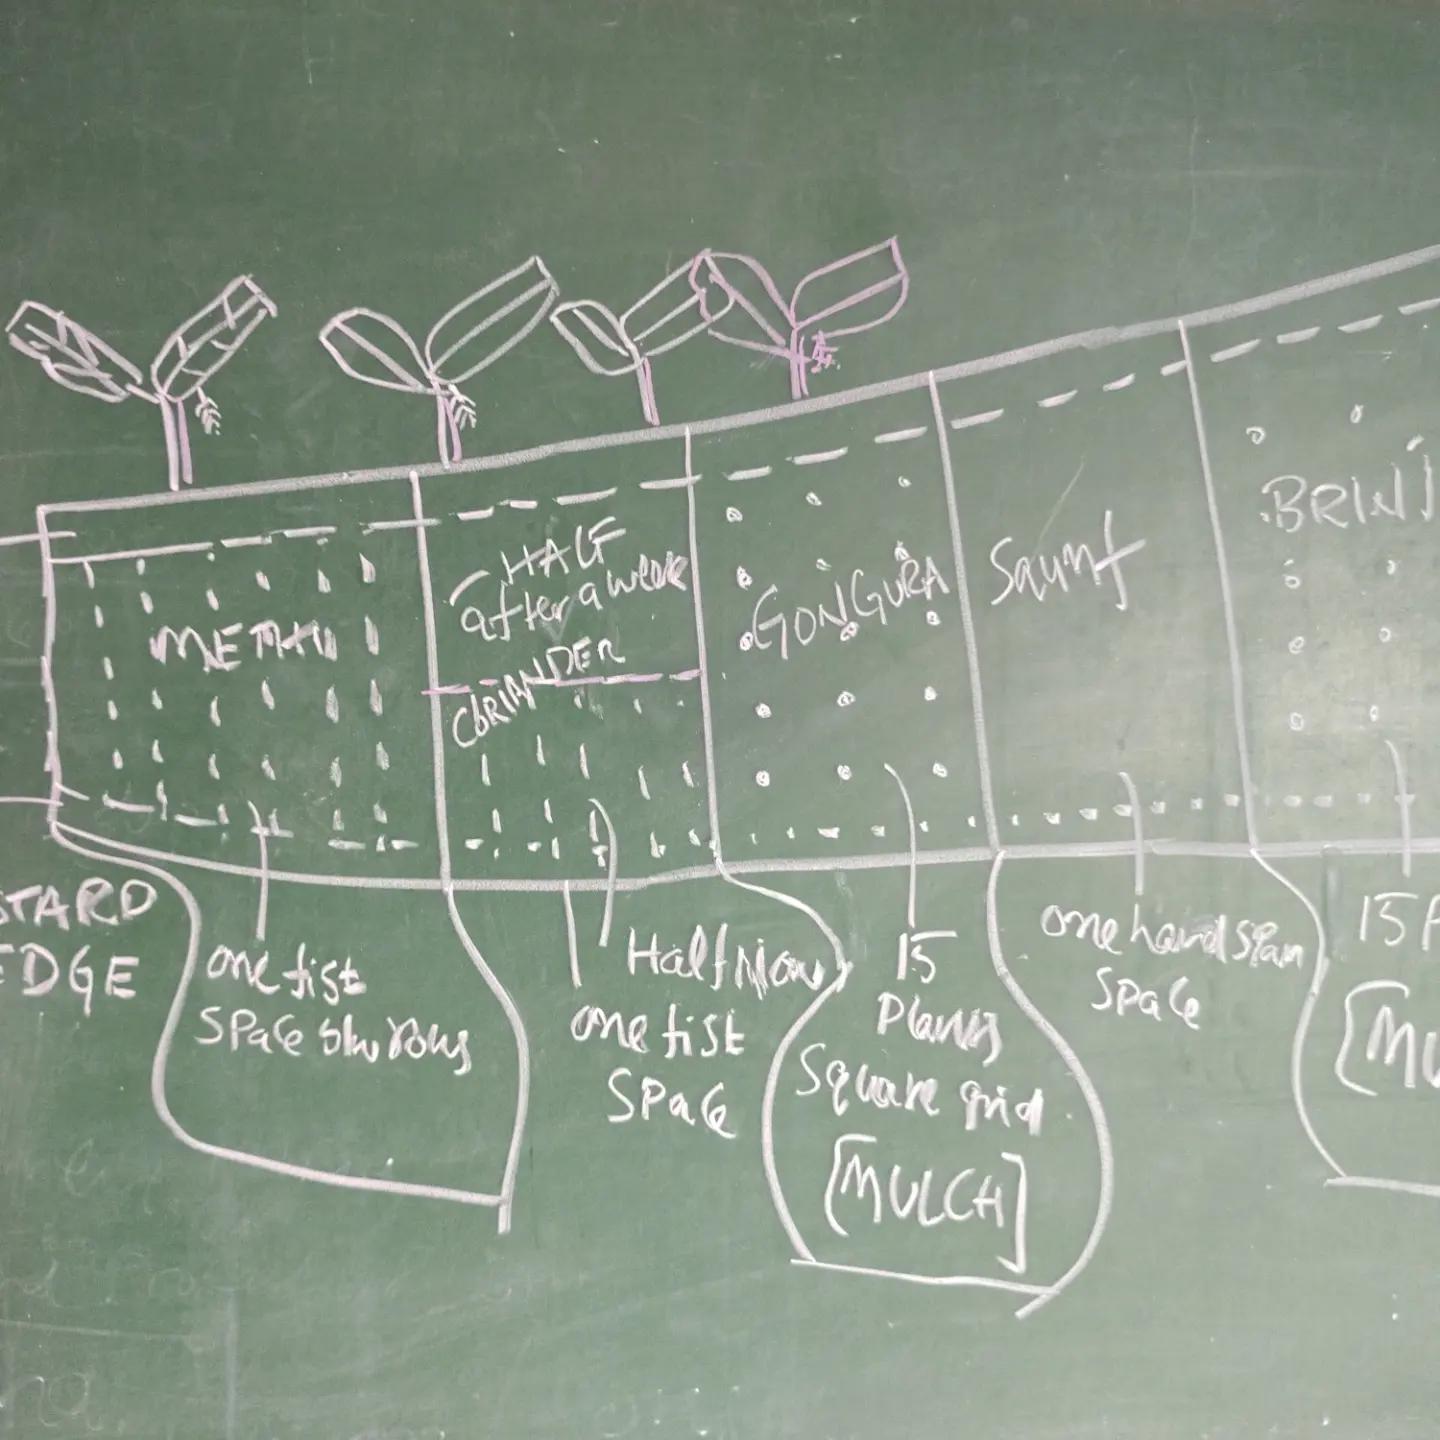 METHI
HALF
after a week
CORIANDER
CORIANDER
GONGURA
Saunf
BRINJ
STARD
EDGE
one fist
SPACE
rows
Half Now
one fist
SPACE
15
Plants
Square grid
[MULCH]
one handspan
space
15 P
[MU